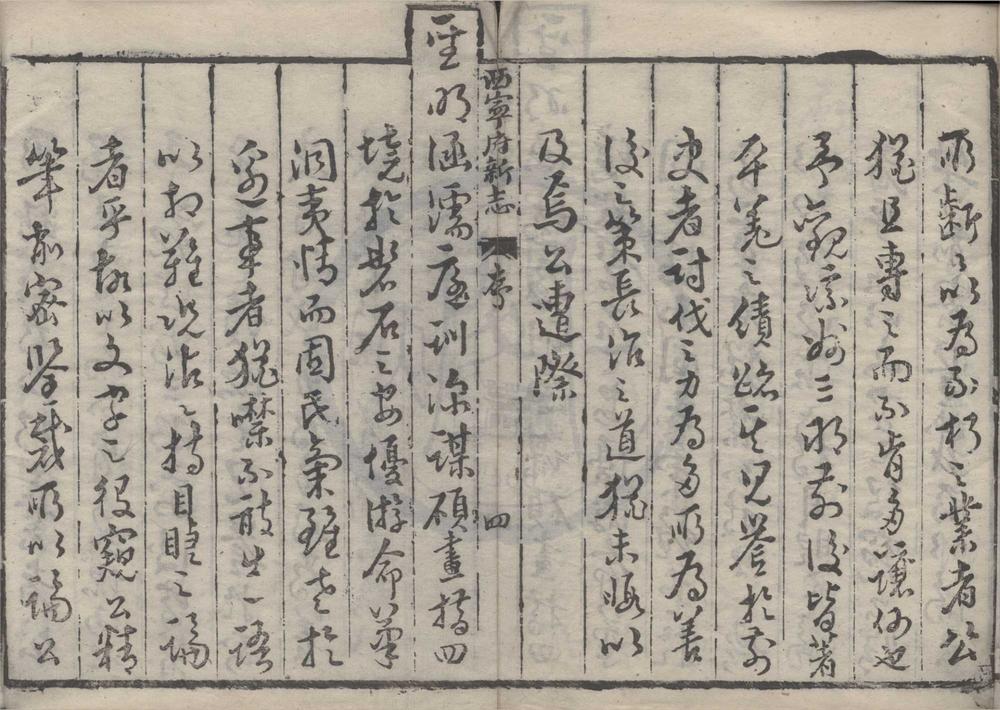 所斷斷以爲不朽之業者公
猶且專之而不肯多讓何也
予觀漢趙三將前後皆著
平羌之績踪其見譽於前
史者討伐之力爲多所爲善
後之策長治之道猶未暇以
及焉公遭際
西寧府新志 序 四
聖明涵濡庭訓深謀碩畫措四
境於磐石之安優游命筆
洞夷情而固民氣雖老於
邊事者猶噤不敢出一語
以相難況沾沾持目睫之論
者乎故以文字之役窺公精
筆削密鑒裁所以論公